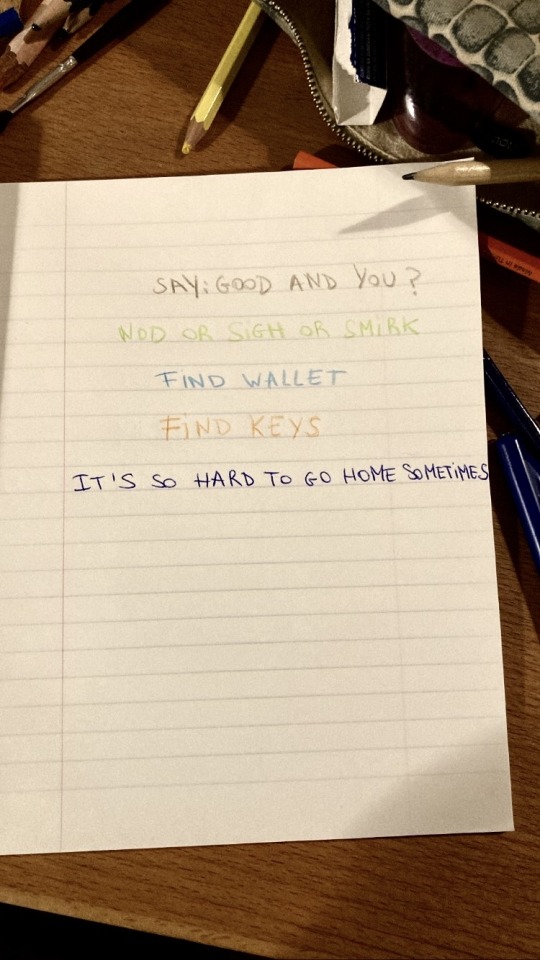 SAY: GOOD AND YOU?
NOD OR SiGH OR SMiRK
FiND WALLET
FiND KEYS
IT'S SO HARD TO GO HOME SOMETiMES